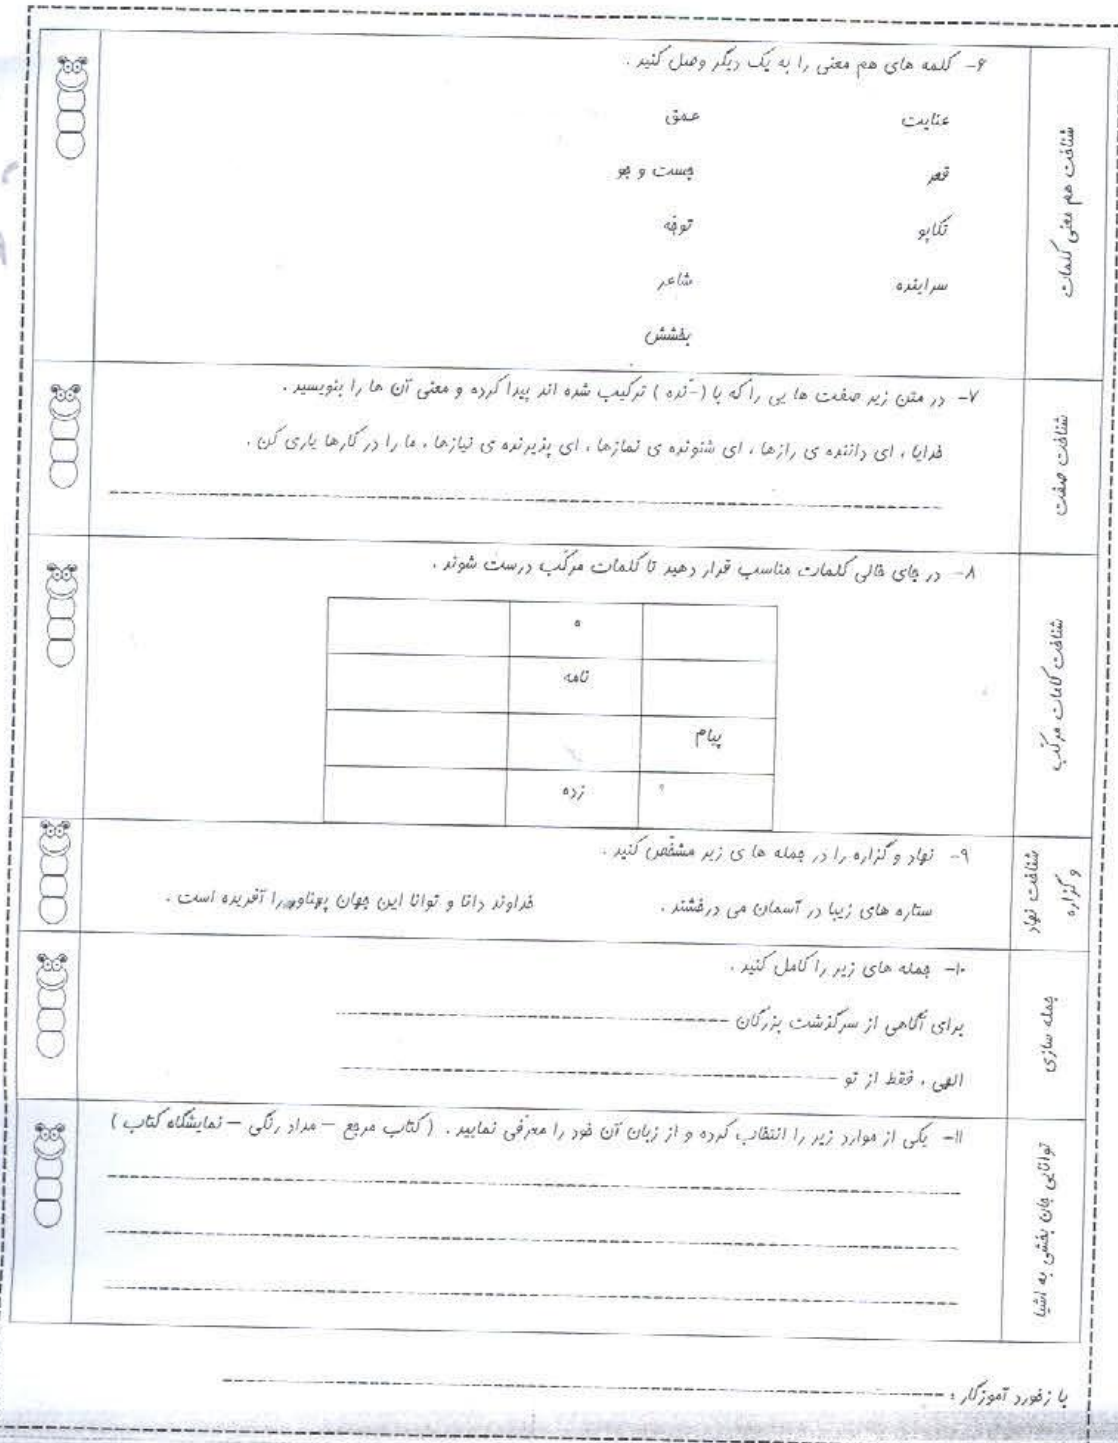 شناخت هم معنی کلمات
۶- کلمه های هم معنی را به یک دیگر وصل کنید .
عنایت عمق
قعر جست و جو
تکاپو توجّه
سراینده شاعر
بخشش
شناخت صفت
۷- در متن زیر صفت ها یی را که با ( -َنده ) ترکیب شده اند پیدا کرده و معنی آن ها را بنویسید .
خدایا ، ای داننده ی رازها ، ای شنونده ی نمازها ، ای پذیرنده ی نیازها ، ما را در کارها یاری کن .
شناخت کلمات مرکّب
۸- در جای خالی کلمات مناسب قرار دهید تا کلمات مرکّب درست شوند .
ه
نامه
پیام
زده
شناخت نهاد
و گزاره
۹- نهاد و گزاره را در جمله ها ی زیر مشخّص کنید .
ستاره های زیبا در آسمان می درخشند . خداوند دانا و توانا این جهان پهناور را آفریده است .
جمله سازی
۱۰- جمله های زیر را کامل کنید .
برای آگاهی از سرگذشت بزرگان
الهی ، فقط از تو
توانایی جان بخشی به اشیا
۱۱- یکی از موارد زیر را انتخاب کرده و از زبان آن خود را معرّفی نمایید . ( کتاب مرجع – مداد رنگی – نمایشگاه کتاب )
با زخورد آموزگار :